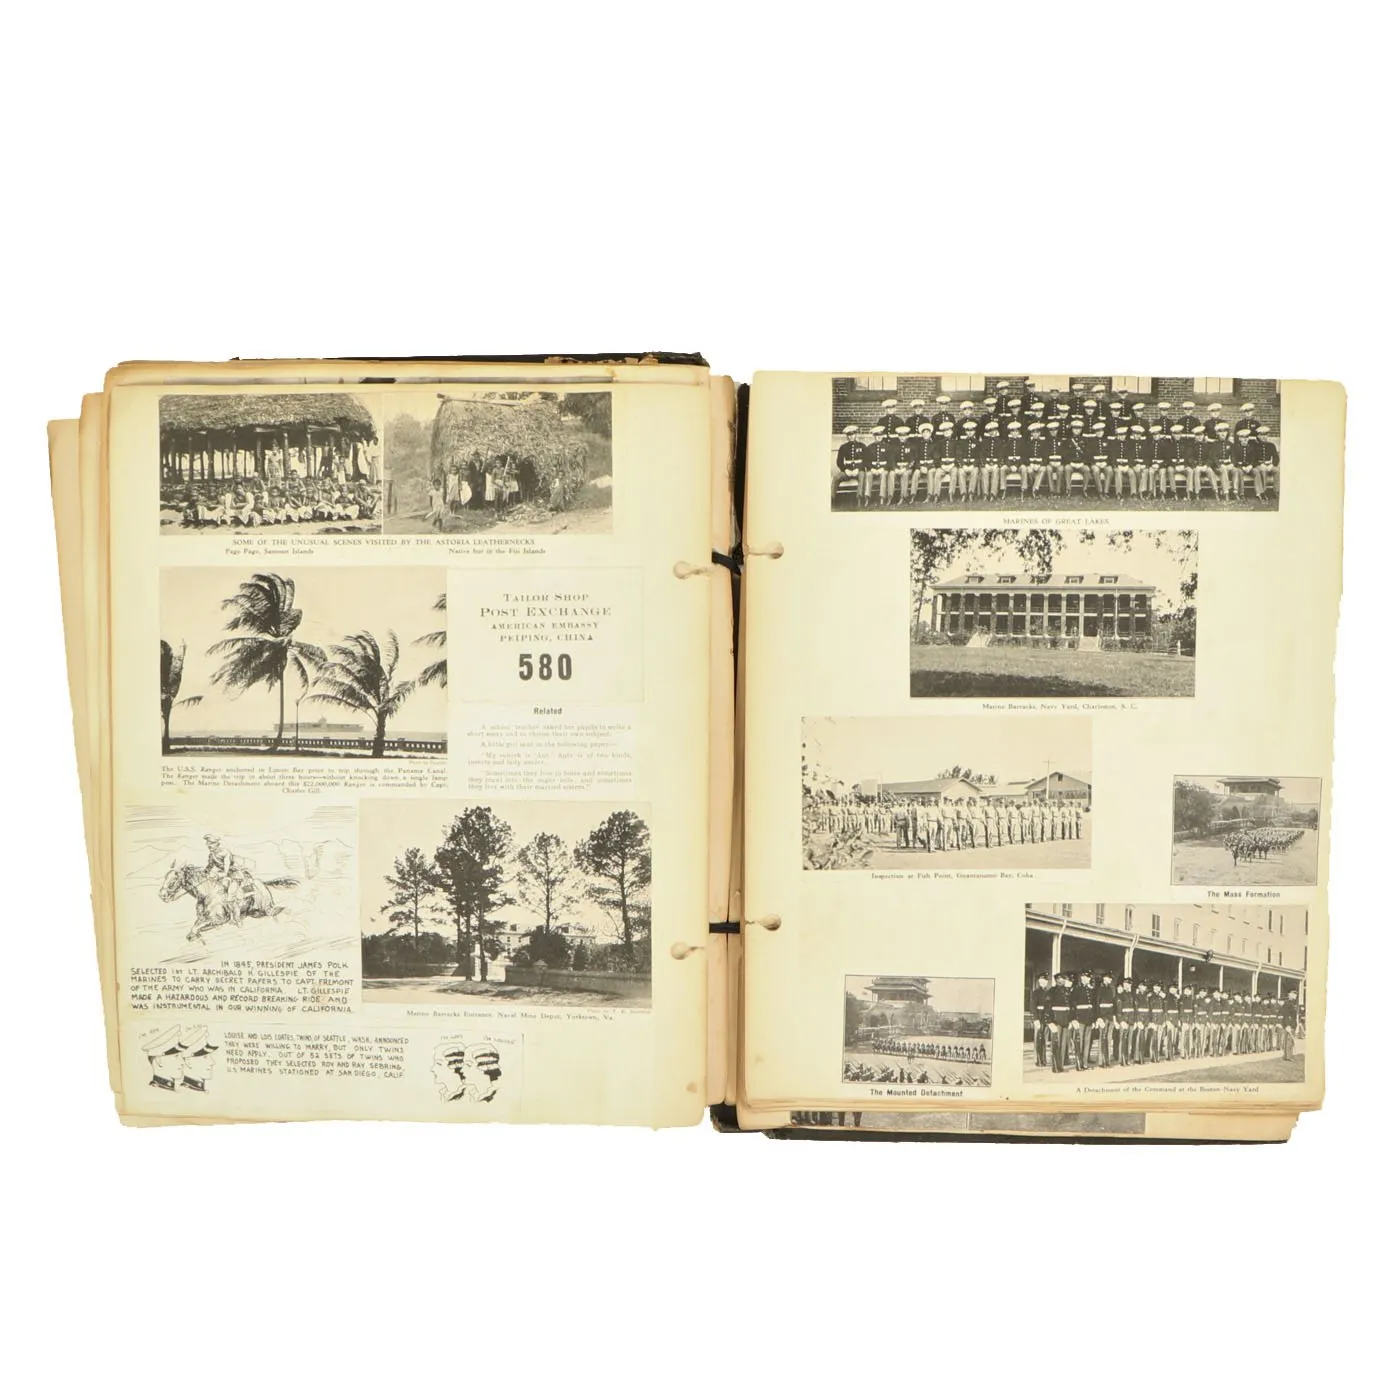 SOME OF THE UNUSUAL SCENES VISITED BY THE ASTORIA LEATHERNECKS
Pago Pago, Samoan Islands
Native hut in the Fiji Islands
TAILOR SHOP
POST EXCHANGE
AMERICAN EMBASSY
PEIPING, CHINA
580
Related
A school teacher asked her pupils to write a
short essay and to choose their own subject.
A little girl sent in the following paper—
"My subjek is 'Ants.' Ants is of two kinds,
insects and lady uncles.
"Sometimes they live in holes and sometimes
they crawl into the sugar bole, and sometimes
they live with their married sisters."
The U.S.S. Ranger anchored in Limon Bay prior to trip through the Panama Canal.
The Ranger made the trip in about three hours—without knocking down a single lamp
post. The Marine Detachment aboard this $22,000,000 Ranger is commanded by Capt.
Charles Gill.
IN 1845, PRESIDENT JAMES POLK
SELECTED 1ST LT. ARCHIBALD H. GILLESPIE OF THE
MARINES TO CARRY SECRET PAPERS TO CAPT. FREMONT
OF THE ARMY WHO WAS IN CALIFORNIA. LT. GILLESPIE
MADE A HAZARDOUS AND RECORD BREAKING RIDE AND
WAS INSTRUMENTAL IN OUR WINNING OF CALIFORNIA.
Marine Barracks Entrance, Naval Mine Depot, Yorktown, Va.
LOUISE AND LOIS COATES, TWINS, OF SEATTLE, WASH. ANNOUNCED
THEY WERE WILLING TO MARRY, BUT ONLY TWINS
NEED APPLY. OUT OF 52 SETS OF TWINS WHO
PROPOSED THEY SELECTED ROY AND RAY SEBRING,
U.S. MARINES STATIONED AT SAN DIEGO, CALIF.
MARINES OF GREAT LAKES
Marine Barracks, Navy Yard, Charleston, S. C.
Inspection at Fish Point, Guantanamo Bay, Cuba
The Mass Formation
The Mounted Detachment
A Detachment of the Command at the Boston Navy Yard